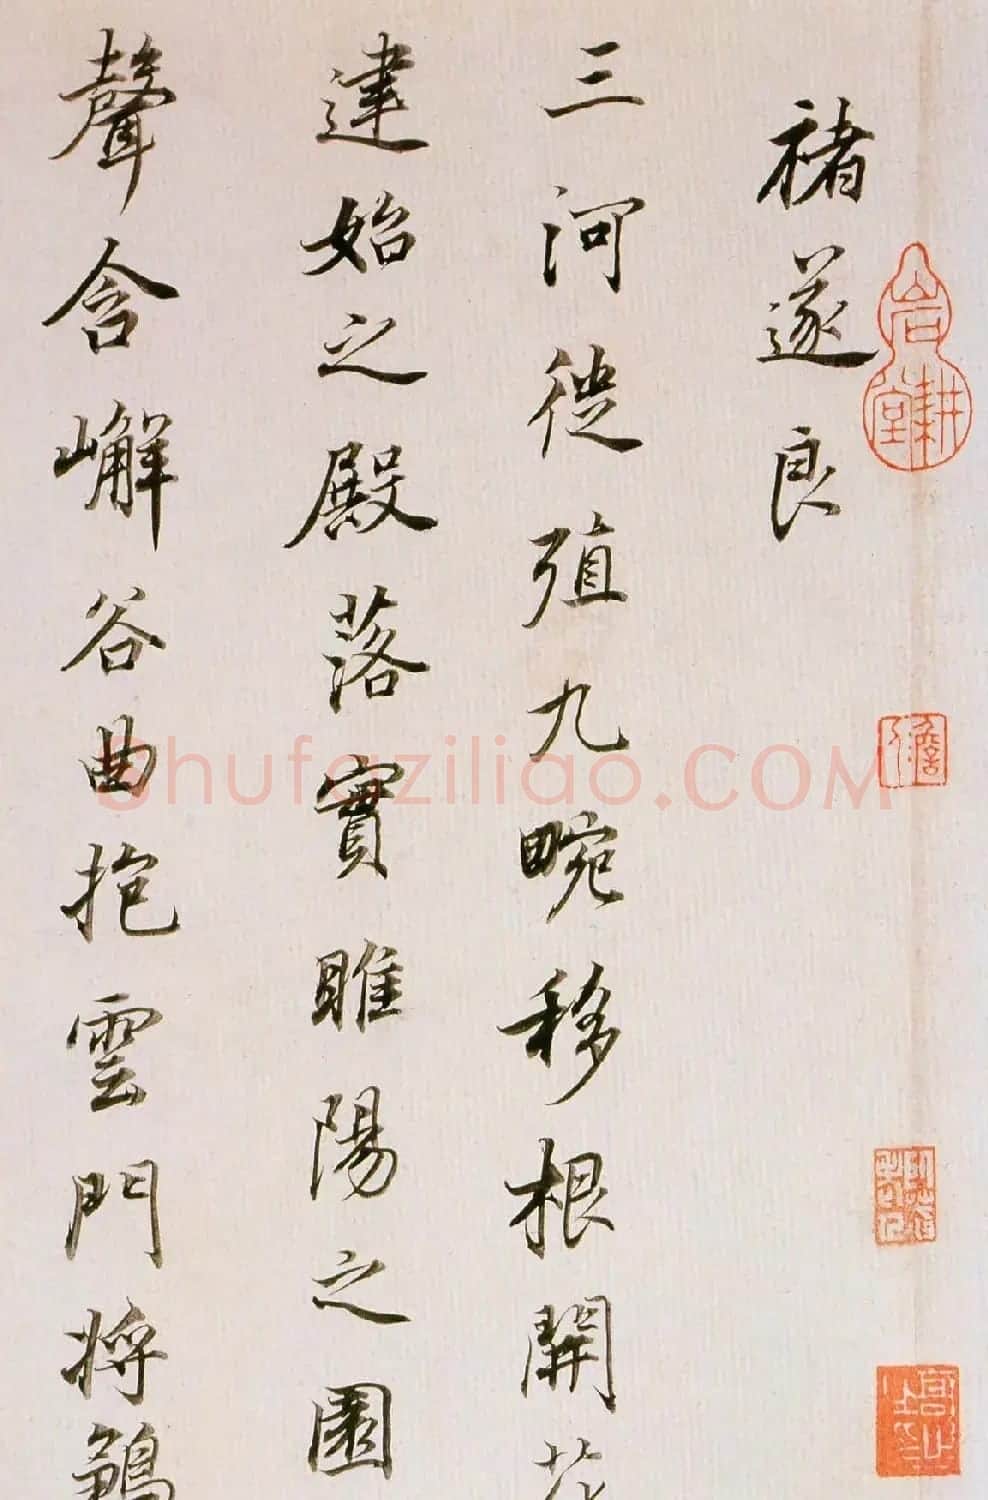 褚遂良
三河徙殖九畹移根開花
建始之殿落實睢陽之園
聲含嶰谷曲抱雲門將鶴
Shufaziliao.COM